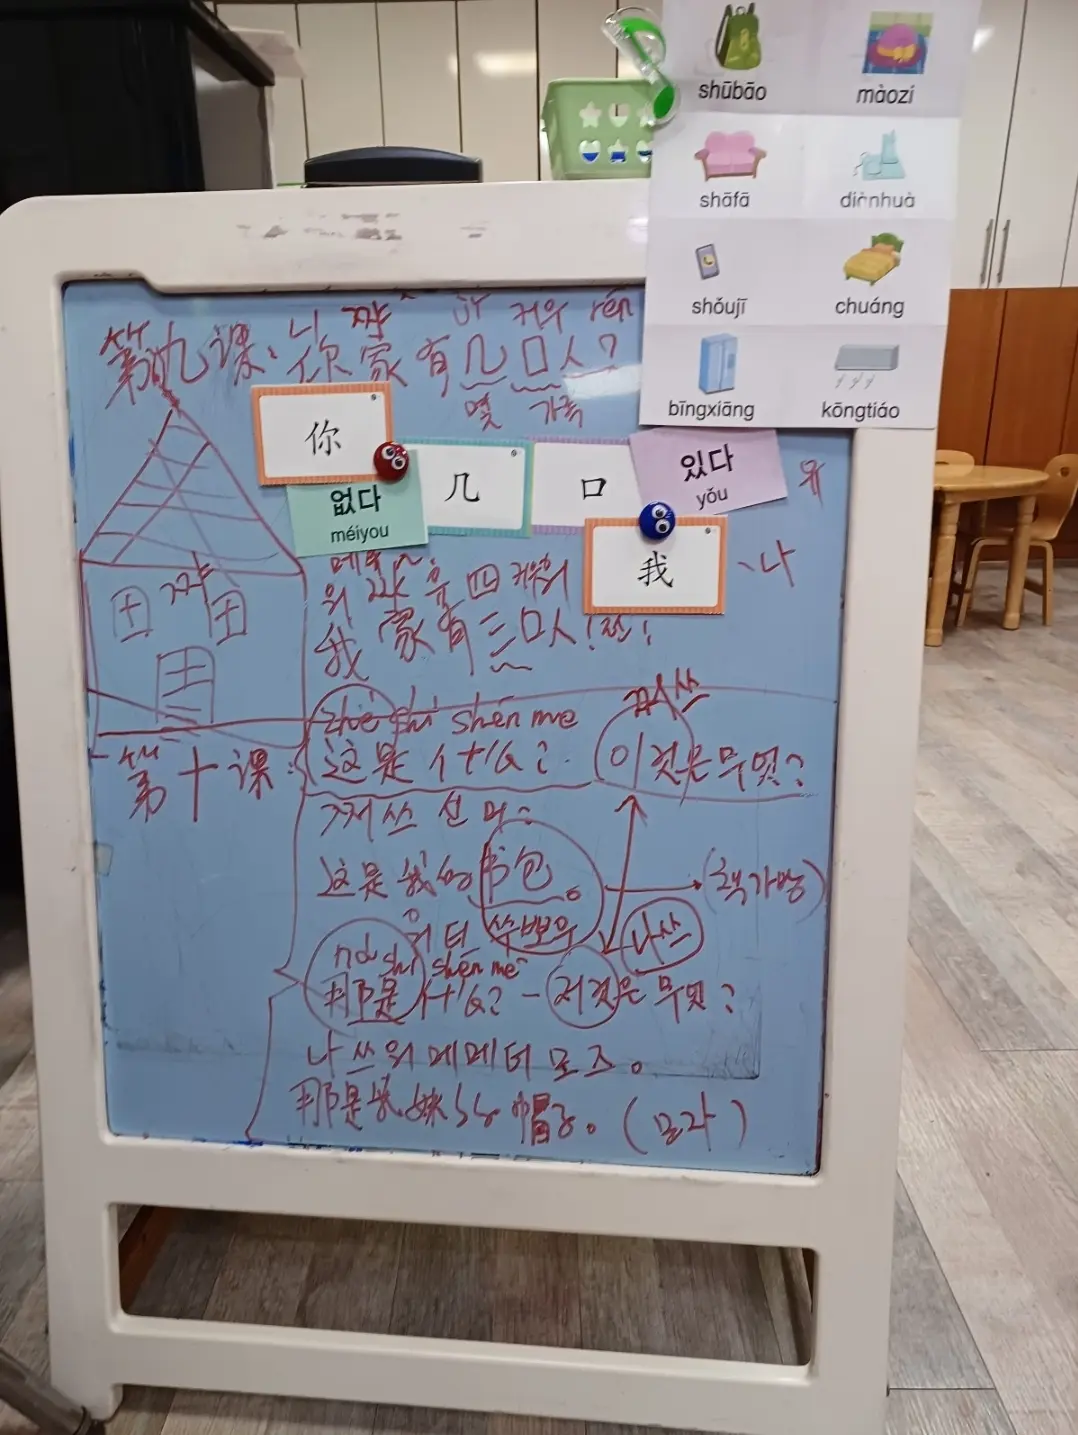 shūbāo màozi
shāfā diànhuà
shǒujī chuáng
bīngxiāng kōngtiáo
니 짜 커우 rén
第九课: 你家有几口人?
몇 가족
你
几
口
있다
yǒu
없다
méiyou
我
나
짜
워 짜 유 四 커우
我家有三口人!
zhè shì shén me 쩌 쓰
第十课: 这是什么? 이것은 무엇?
쩌 쓰 션 머?
这是我的书包。 (책가방)
워 터 쑤빠오 나쓰
nà shì shén me
那是什么? - 저것은 무엇?
나 쓰 워 메메 터 모즈。
那是我妹妹的帽子。 (모자)